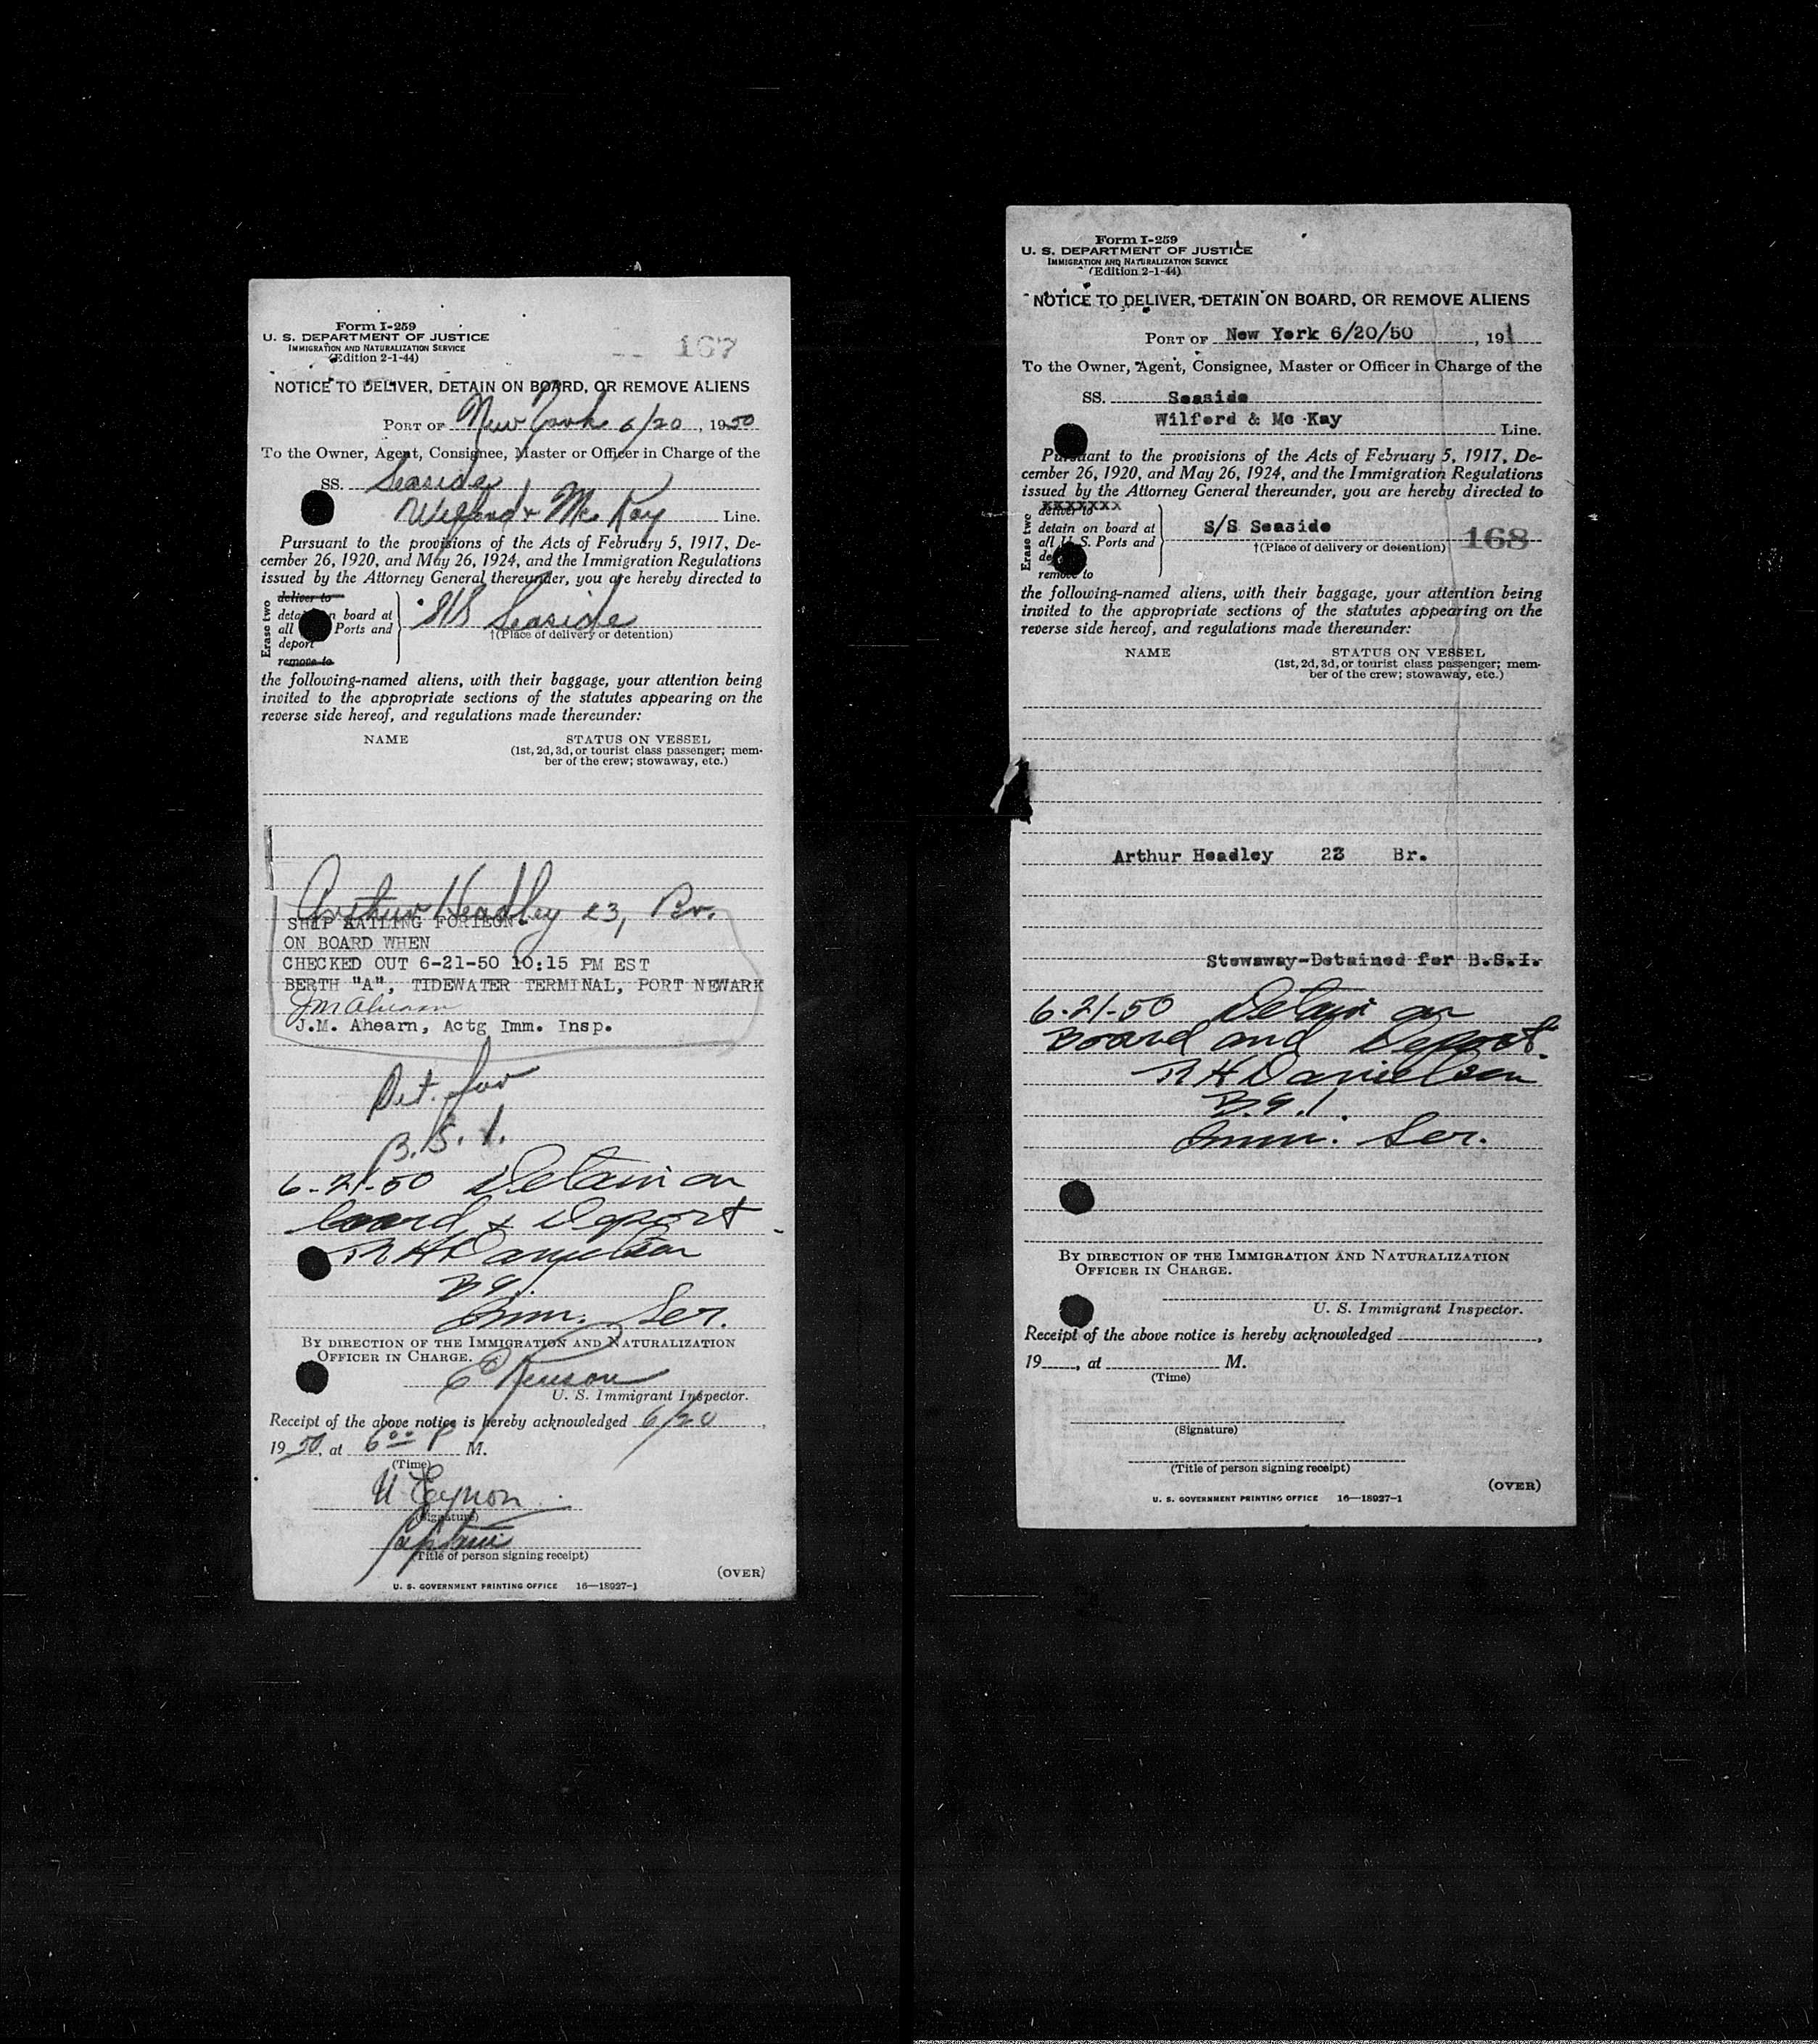 Form I-259
U. S. DEPARTMENT OF JUSTICE
IMMIGRATION AND NATURALIZATION SERVICE
(Edition 2-1-44)
167
NOTICE TO DELIVER, DETAIN ON BOARD, OR REMOVE ALIENS
PORT OF New York 6/20, 1950
To the Owner, Agent, Consignee, Master or Officer in Charge of the
SS. Seaside
Wilford & Mc Kay Line.
Pursuant to the provisions of the Acts of February 5, 1917, De-
cember 26, 1920, and May 26, 1924, and the Immigration Regulations
issued by the Attorney General thereunder, you are hereby directed to
Erase two
deliver to
detain on board at
all Ports and
deport
remove to
S/S Seaside
†(Place of delivery or detention)
the following-named aliens, with their baggage, your attention being
invited to the appropriate sections of the statutes appearing on the
reverse side hereof, and regulations made thereunder:
NAME STATUS ON VESSEL
(1st, 2d, 3d, or tourist class passenger; mem-
ber of the crew; stowaway, etc.)
Arthur Headley 23, Br.
SHIP SAILING FOREIGN.
ON BOARD WHEN
CHECKED OUT 6-21-50 10:15 PM EST
BERTH "A", TIDEWATER TERMINAL, PORT NEWARK
J M Ahearn
J.M. Ahearn, Actg Imm. Insp.
Det. for
B.S.I.
6-21-50 Detain on
board & Deport
R H Danielson
Imm. Ser.
BY DIRECTION OF THE IMMIGRATION AND NATURALIZATION
OFFICER IN CHARGE.
U. S. Immigrant Inspector.
Receipt of the above notice is hereby acknowledged 6/20,
1950, at 6 00 P M.
(Time)
(Signature)
Captain
(Title of person signing receipt)
(OVER)
U. S. GOVERNMENT PRINTING OFFICE 16—18927-1
Form I-259
U. S. DEPARTMENT OF JUSTICE
IMMIGRATION AND NATURALIZATION SERVICE
(Edition 2-1-44)
NOTICE TO DELIVER, DETAIN ON BOARD, OR REMOVE ALIENS
PORT OF New York 6/20/50, 19
To the Owner, Agent, Consignee, Master or Officer in Charge of the
SS. Seaside
Wilford & Mc Kay
Line.
Pursuant to the provisions of the Acts of February 5, 1917, De-
cember 26, 1920, and May 26, 1924, and the Immigration Regulations
issued by the Attorney General thereunder, you are hereby directed to
Erase two
xxxxxxx
deliver to
detain on board at
all U. S. Ports and
remove to
S/S Seaside
†(Place of delivery or detention)
168
the following-named aliens, with their baggage, your attention being
invited to the appropriate sections of the statutes appearing on the
reverse side hereof, and regulations made thereunder:
NAME STATUS ON VESSEL
(1st, 2d, 3d, or tourist class passenger; mem-
ber of the crew; stowaway, etc.)
Arthur Headley 23 Br.
Stowaway-Detained for B.S.I.
6-21-50 Detain on
Board and Deport.
R H Danielson
Imm. Ser.
BY DIRECTION OF THE IMMIGRATION AND NATURALIZATION
OFFICER IN CHARGE.
U. S. Immigrant Inspector.
Receipt of the above notice is hereby acknowledged ,
19 , at M.
(Time)
(Signature)
(Title of person signing receipt)
(OVER)
U. S. GOVERNMENT PRINTING OFFICE 16—18927-1